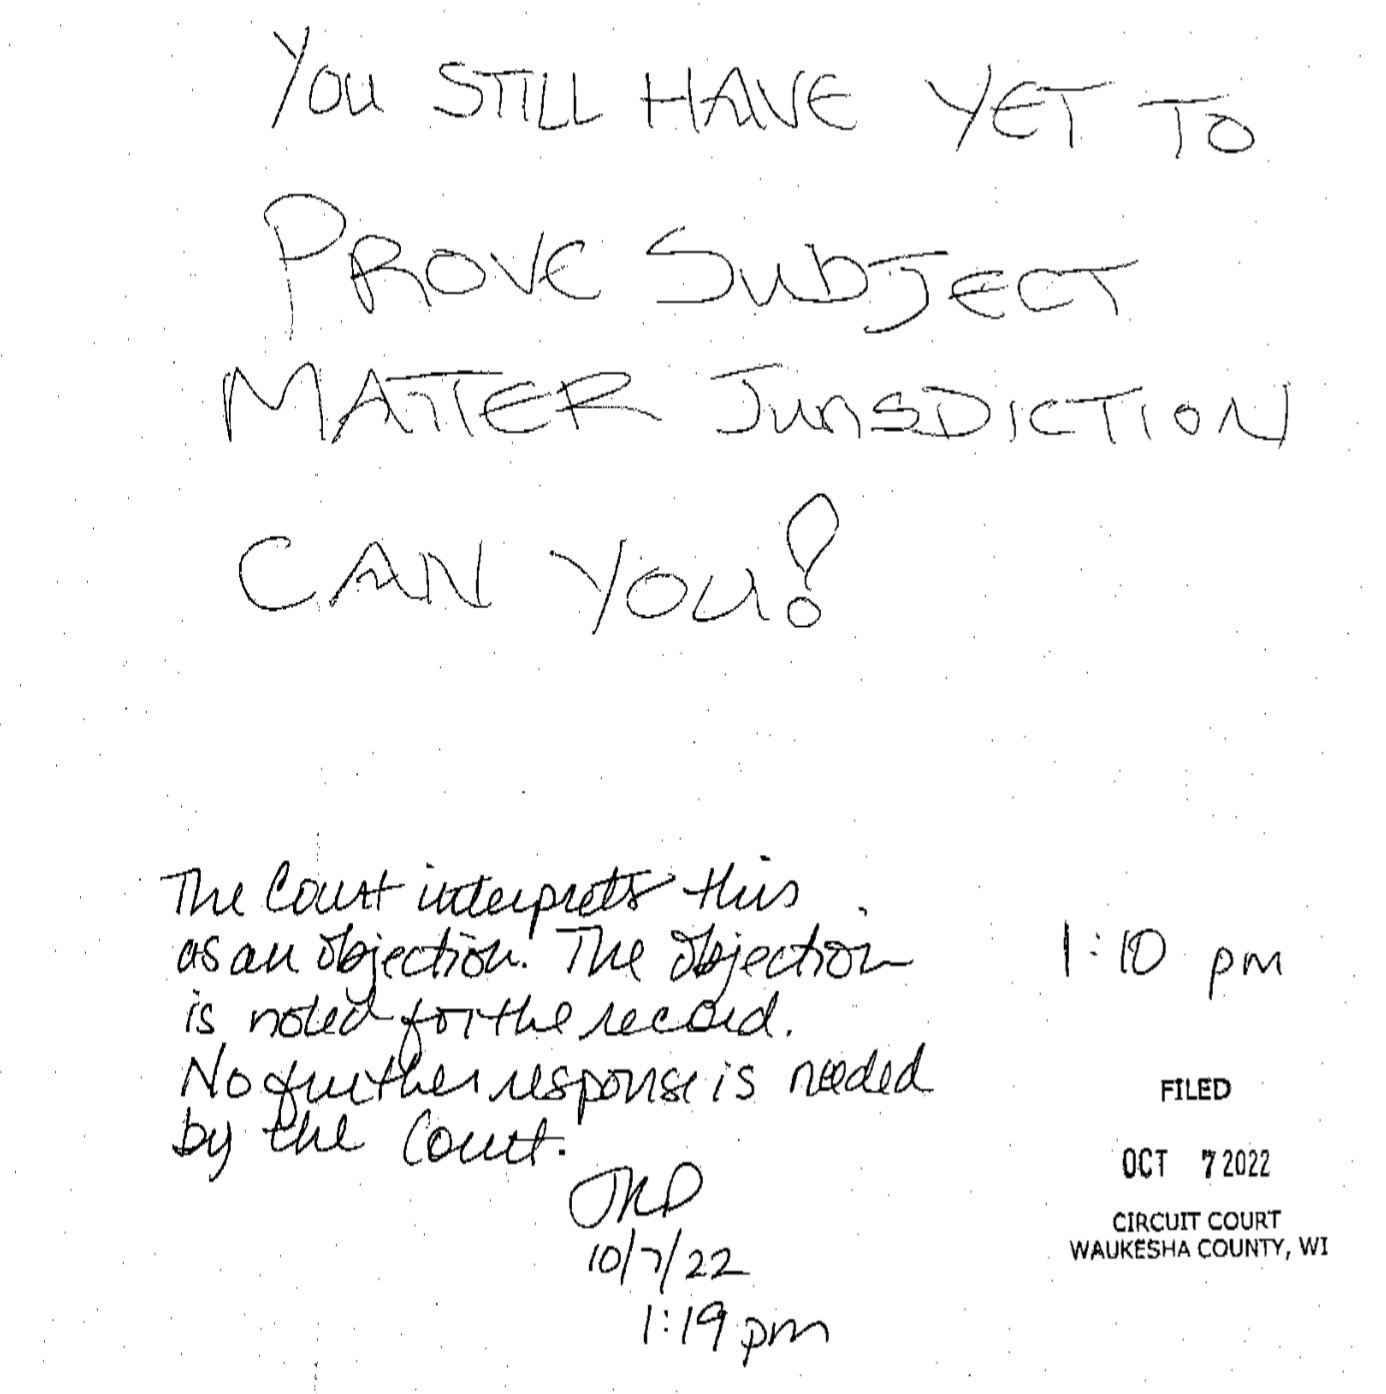 YOU STILL HAVE YET TO
PROVE SUBJECT
MATTER JURISDICTION
CAN YOU!
The Court interprets this
as an objection. The objection
is noted for the record.
No further response is needed
by the Court.
JRD
10/7/22
1:19 pm
1:10 pm
FILED
OCT 7 2022
CIRCUIT COURT
WAUKESHA COUNTY, WI